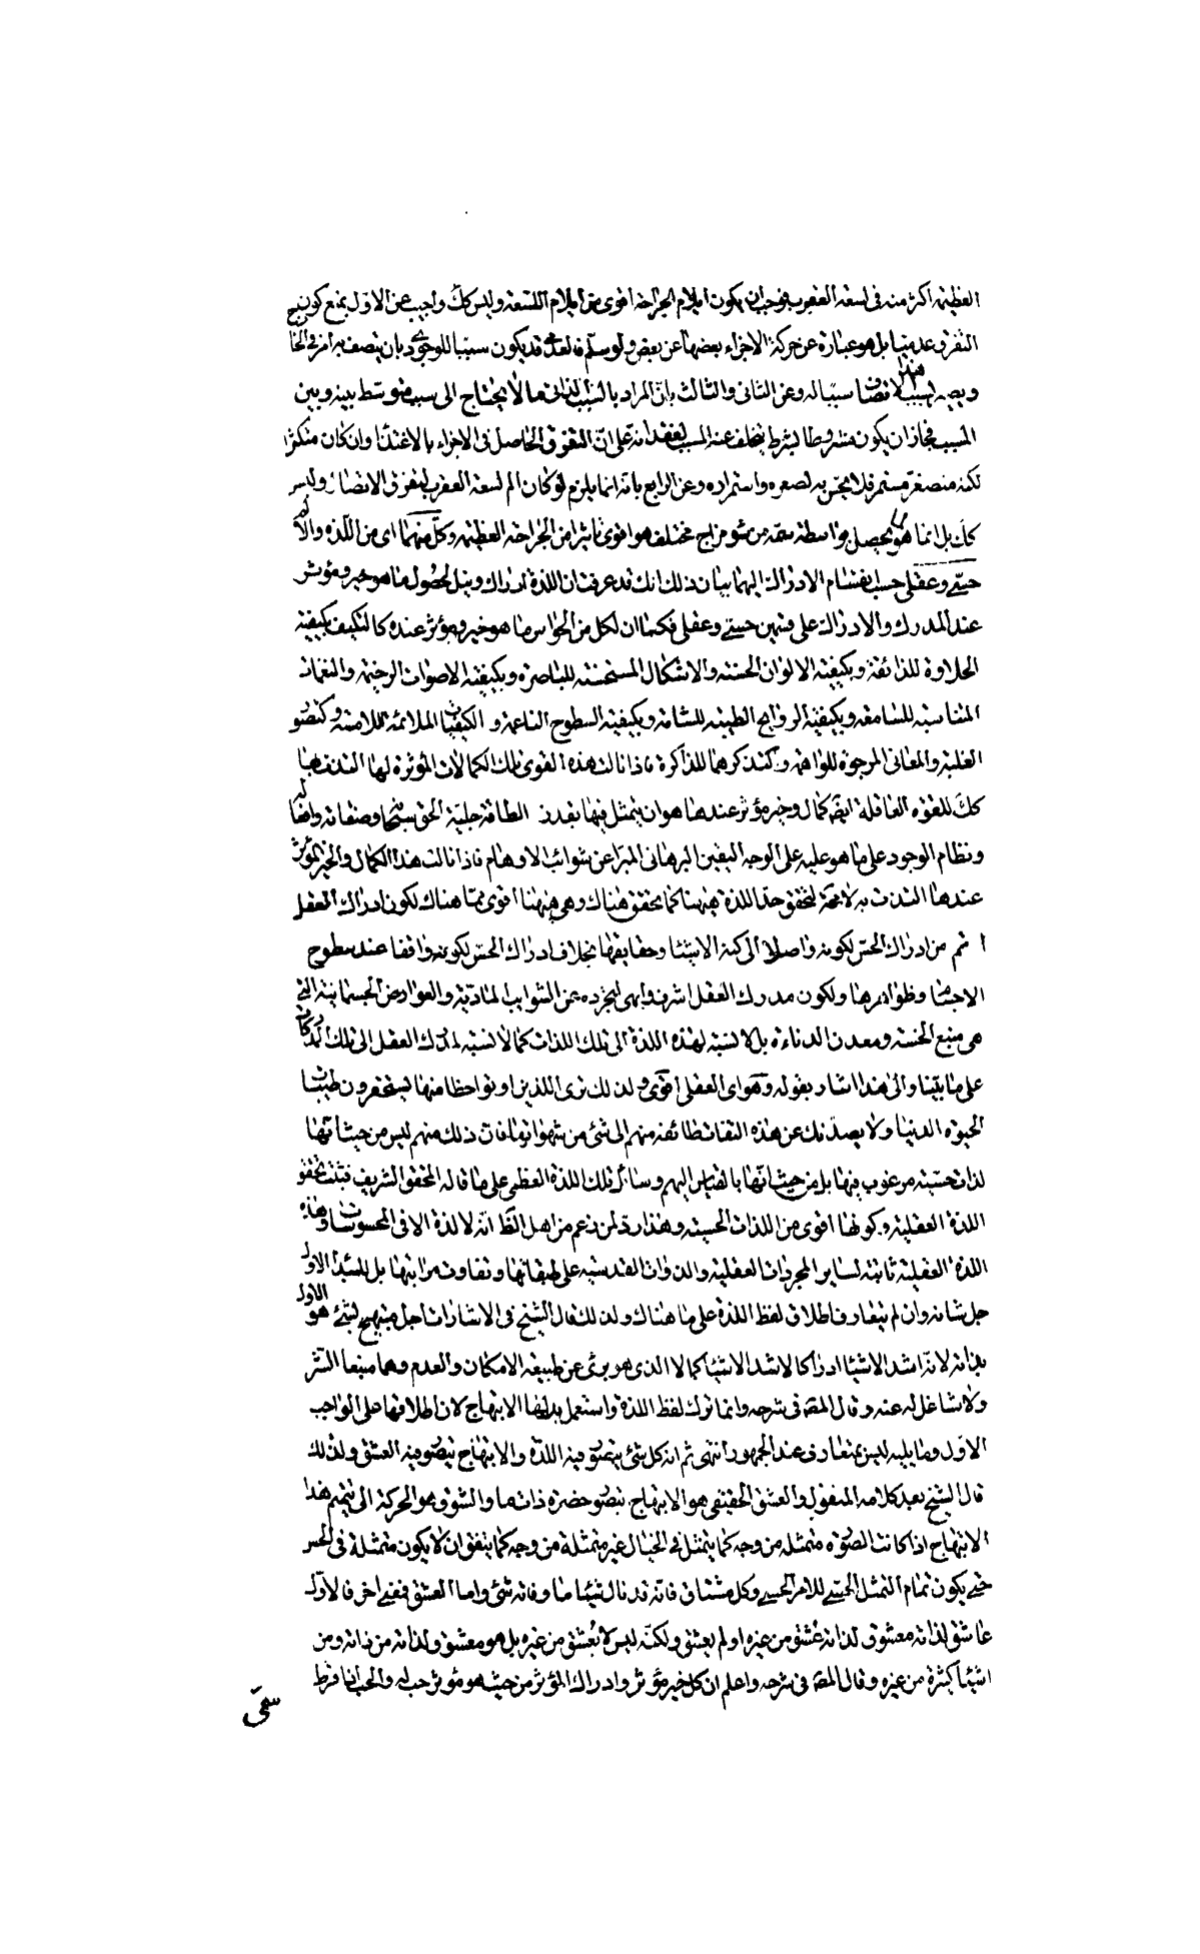 العظيمة اكثر منه فى لسعة العقرب فوجب ان يكون ايلام الجراحة اقوى من ايلام اللسعة وليس كك واجيب عن الاول بمنع كون
التفرق عدميا بل هو عبارة عن حركة الاجزاء بعضها عن بعض ولو سلم فالعدمى قد يكون سببا للوجودى بان يتصف به امر فى الخا
ويصير بسبب هذا الاتصاف سببا له وعن الثانى والثالث بان المراد بالسبب الذاتى ما لا يحتاج الى سبب متوسط بينه وبين
المسبب فجاز ان يكون مشروطا بشرط يتخلف عنه المسبب لفقدانه على ان التفرق الحاصل فى الاجزاء بالاغتذا وان كان متكثرا
لكنه متصغر مستمر فلا يحس به لصغره واستمراره وعن الرابع بانه انما يلزم لو كان الم لسعة العقرب لتفرق الاتصال وليس
كك بل انما هو يحصل بواسطة سمه من سوء مزاج مختلف هو اقوى تاثيرا من الجراحة العظيمة وكل منهما اى من اللذة والالم
حسى وعقلى حسب انقسام الادراك اليهما بيان ذلك انك قد عرفت ان اللذة ادراك ونيل لحصول ما هو خير ومؤثر
عند المدرك والادراك على قسمين حسى وعقلى فكما ان لكل من الحواس ما هو خير ومؤثر عنده كالتكيف بكيفية
الحلاوة للذائقة وبكيفية الالوان الحسنة والاشكال المستحسنة للباصرة وبكيفية الاصوات الرخيمة والنغمات
المتناسبة للسامعة وبكيفية الروايح الطيبة للشامة وبكيفية السطوح الناعمة والكيفيات الملائمة لللامسة وكتصور
الغلبة والمعانى المرجوة للواهمة وكتذكرهما للذاكرة فاذا نالت هذه القوى تلك الكمالات المؤثرة لها التذت بها
كك للقوة العاقلة ايضا كمال وخير مؤثر عندها هو ان يتمثل فيها بقدر الطاقة جلية الحق سبحانه وصفاته وافعاله
ونظام الوجود على ما هو عليه على الوجه اليقين البرهانى المبرا عن شوائب الاوهام فاذا نالت هذا الكمال والخير المؤثر
عندها التذت به لا محة لتحقق حد اللذة ههنا كما تحقق هناك وهى ههنا اقوى مما هناك لكون ادراك العقل
اتم من ادراك الحس لكونه واصلا الى كنه الاشيا وحقايقها بخلاف ادراك الحس لكونه واقفا عند سطوح
الاجسام وظواهرها ولكون مدرك العقل اشرف وابهى لتجرده عن الشوايب المادية والعوارض الجسمانية التى
هى منبع الخسة ومعدن الدناءة بل لا نسبة لهذه اللذة الى تلك اللذات كما لا نسبة لمدرك العقل الى تلك المدركات
على ما بينا والى هذا اشار بقوله وهو اى العقلى اقوى ولذلك ترى الذين اوتوا حظا منها يستحقرون طيبات
الحيوة الدنيا ولا يصدنك عن هذه التفات طائفة منهم الى شئ من شهواتها فان ذلك منهم ليس من حيث انها
لذات حسية مرغوب فيها بل من حيث انها بالقياس اليهم وسائل تلك اللذة العظمى على ما قاله المحقق الشريف فثبت تحقق
اللذة العقلية وكونها اقوى من اللذات الحسية وهذا رد لمن زعم من اهل الظ انه لا لذة الا فى المحسوسات وهذه
اللذة العقلية ثابتة لساير المجردات العقلية والذوات القدسية على طبقاتها وتفاوت مراتبها بل للمبدأ الاول
جل شانه وان لم يتعارف اطلاق لفظ اللذة على ما هناك ولذلك قال الشيخ فى الاشارات اجل مبتهج بشئ هو الاول
بذاته لانه اشد الاشيا ادراكا لاشد الاشيا كمالا الذى هو برئ عن طبيعة الامكان والعدم وهما منبعا الشر
ولا شاغل له عنه وقال المص فى شرحه وانما ترك لفظ اللذة واستعمل بدلها الابتهاج لان اطلاقها على الواجب
الاول وما يليه ليس بمتعارف عند الجمهور انتهى ثم انه كل شئ يتصور فيه اللذة والابتهاج يتصور فيه العشق ولذلك
قال الشيخ بعد كلامه المنقول والعشق الحقيقى هو الابتهاج بتصور حضرة ذات ما والشوق هو الحركة الى تتميم هذا
الابتهاج اذا كانت الصورة متمثلة من وجه كما يتمثل فى الخيال غير متمثلة من وجه كما يتفق ان لا يكون متمثلة فى الحس
حتى يكون تمام التمثل الحسى للامر الحسى وكل مشتاق فانه قد نال شيئا ما وفاته شئ واما العشق فمعنى اخر فالاول
عاشق لذاته معشوق لذاته عشق من غيره او لم يعشق ولكنه ليس لا يعشق من غيره بل هو معشوق لذاته من ذاته ومن
اشيا كثيرة من غيره وقال المص فى شرحه واعلم ان كل خير مؤثر وادراك المؤثر من حيث هو مؤثر حب له والحب اذا فرط
سمى